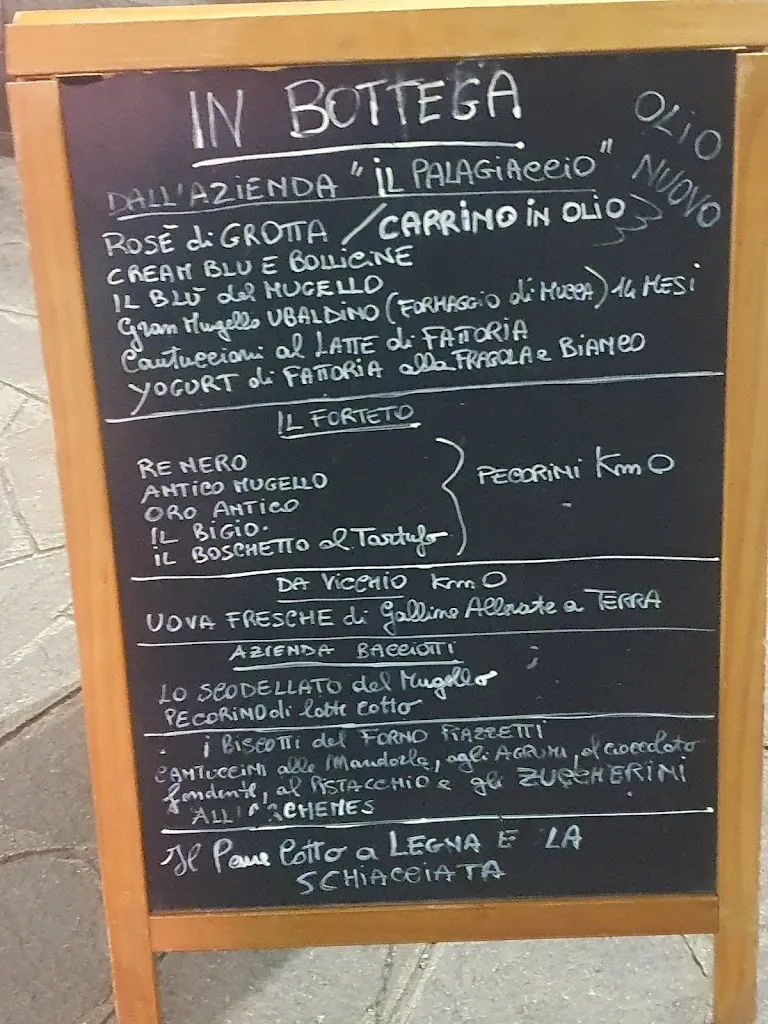 IN BOTTEGA
OLIO
NUOVO
DALL'AZIENDA "IL PALAGIACCIO"
ROSÈ di GROTTA / CAPRINO IN OLIO
CREAM BLU E BOLLICINE
IL BLÙ del MUGELLO
Gran Mugello UBALDINO (FORMAGGIO di MUCCA) 14 MESI
Cantuccioni al LATTE di FATTORIA
YOGURT di FATTORIA alla FRAGOLA e BIANCO
IL FORTETO
RE NERO
ANTICO MUGELLO
ORO ANTICO
IL BIGIO.
IL BOSCHETTO al Tartufo
PECORINI Km 0
DA VICCHIO Km 0
UOVA FRESCHE di Galline Allevate a TERRA
AZIENDA BACCIOTTI
LO SCODELLATO del Mugello
PECORINO di latte cotto
I BISCOTTI del FORNO PIAZZETTI
CANTUCCINI alle Mandorle, agli AGRUMI, al cioccolato
fondente, al PISTACCHIO e gli ZUCCHERINI
Il Pane Cotto a LEGNA E LA
SCHIACCIATA